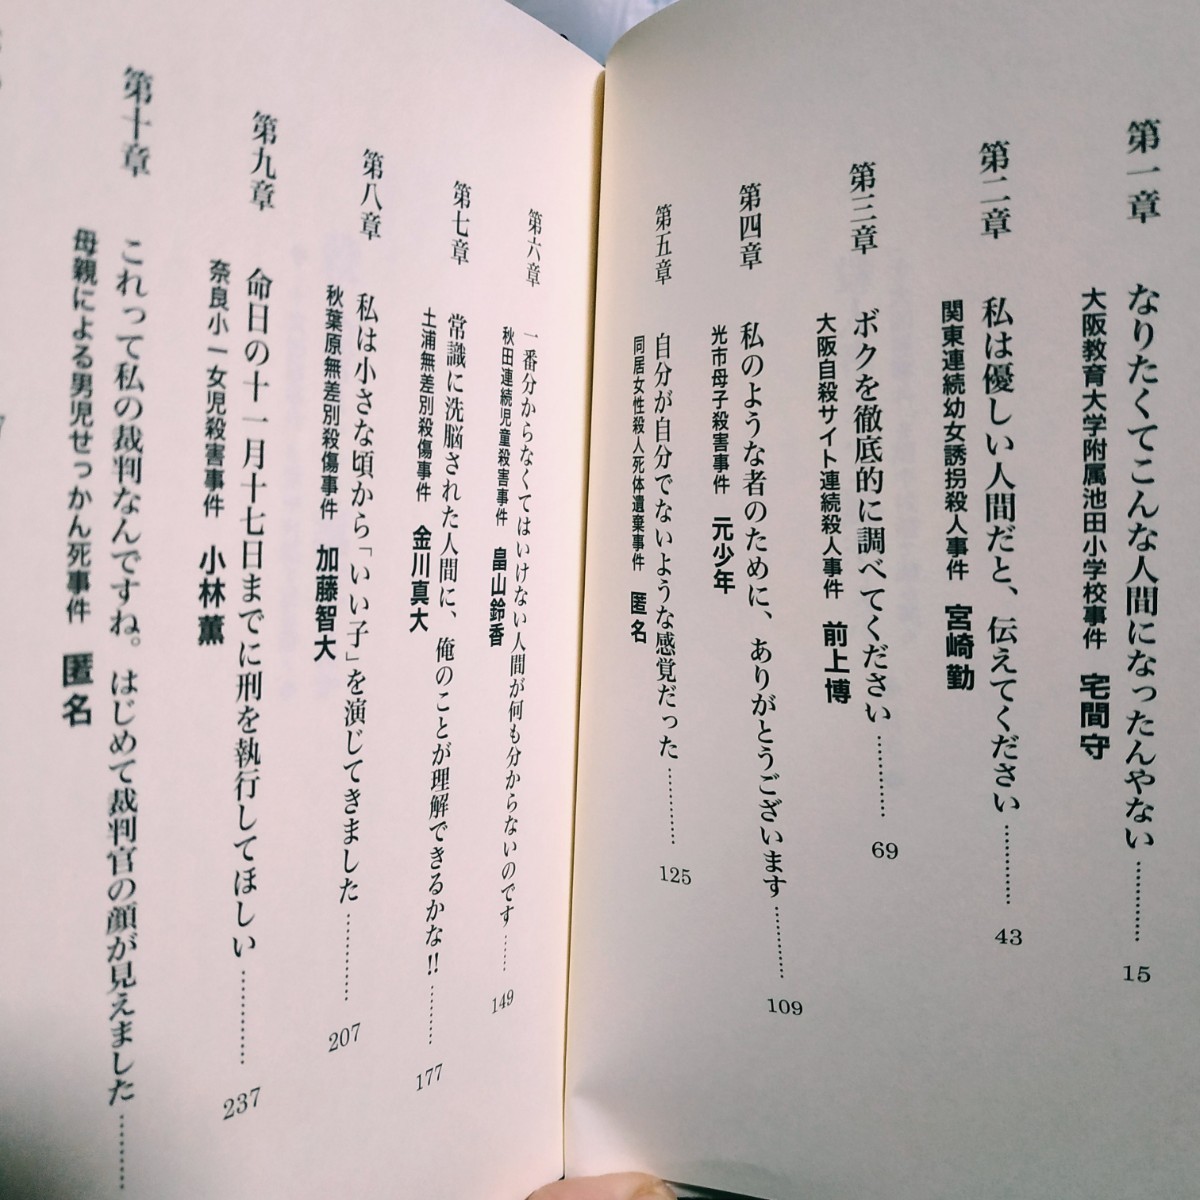 第一章
なりたくてこんな人間になったんやない…………15
大阪教育大学附属池田小学校事件 宅間守
第二章
私は優しい人間だと、伝えてください…………43
関東連続幼女誘拐殺人事件 宮崎勤
第三章
ボクを徹底的に調べてください…………69
大阪自殺サイト連続殺人事件 前上博
第四章
私のような者のために、ありがとうございます…………109
光市母子殺害事件 元少年
第五章
自分が自分でないような感覚だった…………125
同居女性殺人死体遺棄事件 匿名
第六章
一番分からなくてはいけない人間が何も分からないのです……149
秋田連続児童殺害事件 畠山鈴香
第七章
常識に洗脳された人間に、俺のことが理解できるかな!!………177
土浦無差別殺傷事件 金川真大
第八章
私は小さな頃から「いい子」を演じてきました…………207
秋葉原無差別殺傷事件 加藤智大
第九章
命日の十一月十七日までに刑を執行してほしい…………237
奈良小一女児殺害事件 小林薫
第十章
これって私の裁判なんですね。はじめて裁判官の顔が見えました………
母親による男児せっかん死事件 匿名